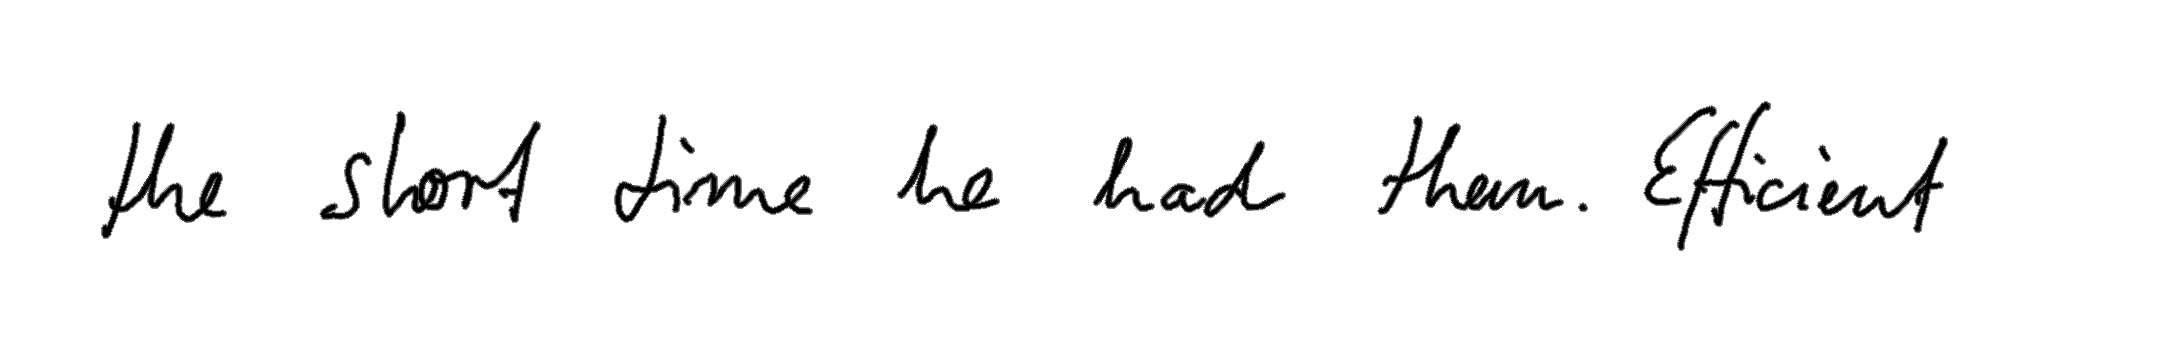 the short time he had them. Efficient